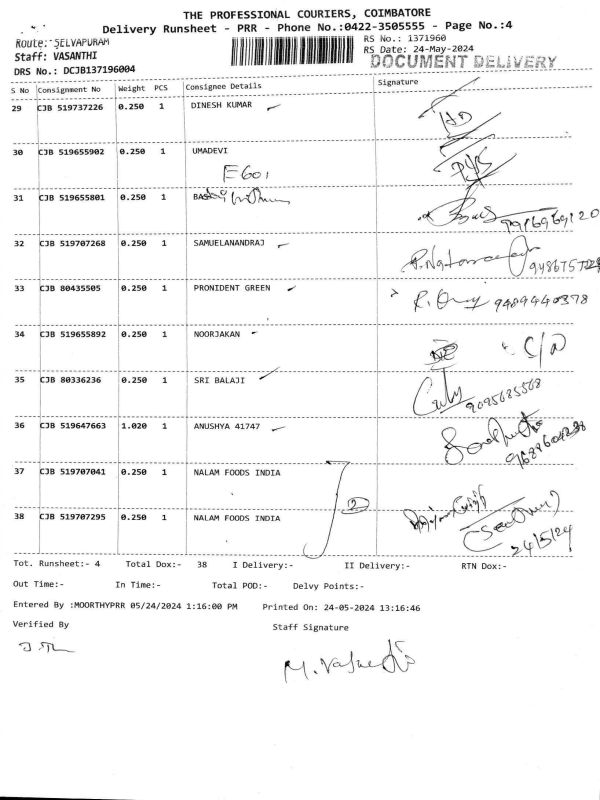 THE PROFESSIONAL COURIERS, COIMBATORE
Delivery Runsheet - PRR - Phone No.:0422-3505555 - Page No.:4
Route:- SELVAPURAM RS No.: 1371960
Staff: VASANTHI RS Date: 24-May-2024
DRS No.: DCJB137196004 DOCUMENT DELIVERY
S No Consignment No Weight PCS Consignee Details Signature
29 CJB 519737226 0.250 1 DINESH KUMAR
30 CJB 519655902 0.250 1 UMADEVI
E601
31 CJB 519655801 0.250 1
9916969120
32 CJB 519707268 0.250 1 SAMUELANANDRAJ
P. Natarajan
33 CJB 80435505 0.250 1 PRONIDENT GREEN
9489440378
34 CJB 519655892 0.250 1 NOORJAKAN
35 CJB 80336236 0.250 1 SRI BALAJI
9095685568
36 CJB 519647663 1.020 1 ANUSHYA 41747
37 CJB 519707041 0.250 1 NALAM FOODS INDIA
2
38 CJB 519707295 0.250 1 NALAM FOODS INDIA
24/5/24
Tot. Runsheet:- 4 Total Dox:- 38 I Delivery:- II Delivery:- RTN Dox:-
Out Time:- In Time:- Total POD:- Delvy Points:-
Entered By :MOORTHYPRR 05/24/2024 1:16:00 PM Printed On: 24-05-2024 13:16:46
Verified By Staff Signature